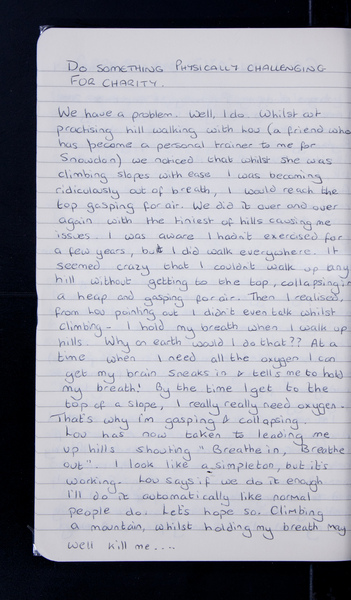 DO SOMETHING PHYSICALLY CHALLENGING
FOR CHARITY.
We have a problem. Well, I do. Whilst out
practising hill walking with Lou (a friend who
has become a personal trainer to me for
Snowdon) we noticed that whilst she was
climbing slopes with ease I was becoming
ridiculously out of breath, I would reach the
top gasping for air. We did it over and over
again with the tiniest of hills causing me
issues. I was aware I hadn't exercised for
a few years, but I did walk everywhere. It
seemed crazy that I couldn't walk up any
hill without getting to the top, collapsing in
a heap and gasping for air. Then I realised,
from Lou pointing out I didn't even talk whilst
climbing - I hold my breath when I walk up
hills. Why on earth would I do that?? At a
time when I need all the oxygen I can
get my brain sneaks in & tells me to hold
my breath! By the time I get to the
top of a slope, I really really need oxygen.
That's why I'm gasping & collapsing.
Lou has now taken to leading me
up hills shouting "Breathe in, Breathe
out". I look like a simpleton, but it's
working. Lou says if we do it enough
I'll do it automatically like normal
people do. Let's hope so. Climbing
a mountain, whilst holding my breath may
well kill me....